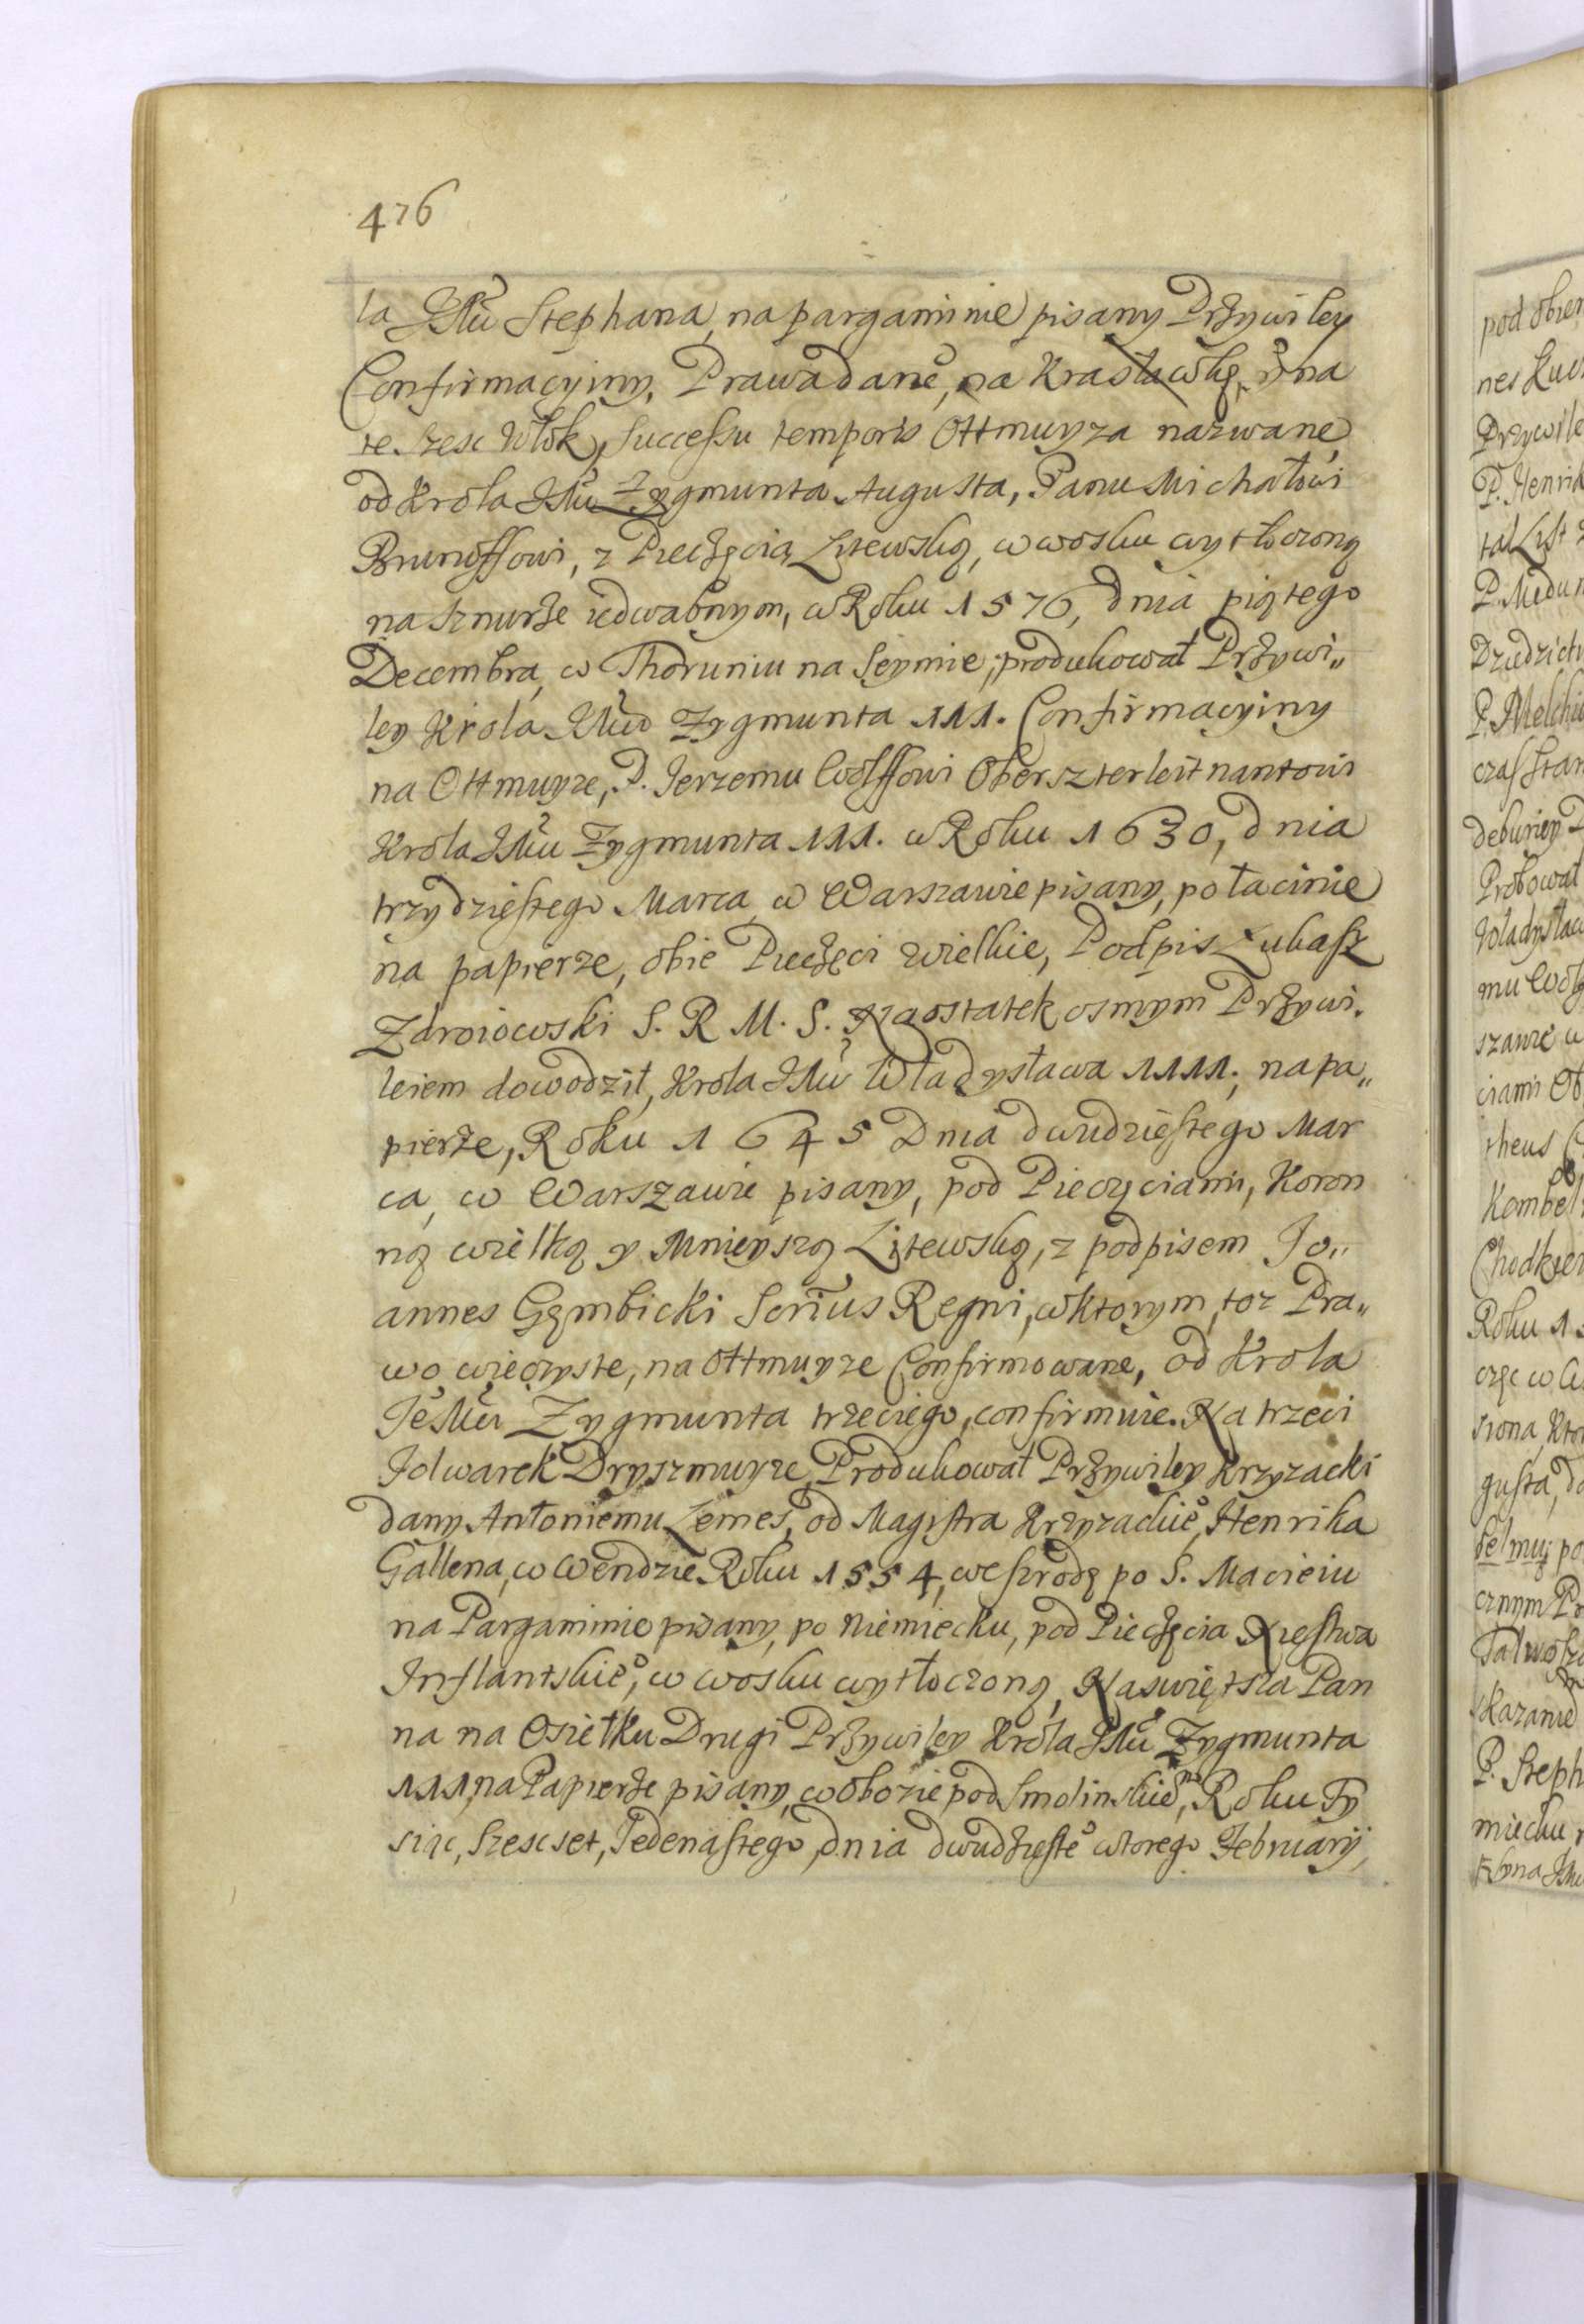 476
la JMći Stephana, na pargaminie pisany Przywiley
Confirmacyiny, Prawa dane͛, na Krasławkę, y na
te szesc Włok, successu temporis Ottmuyza nazwane,
od Krola JMći Zygmunta Augusta, Panu Michałowi
Brunoffowi, z Pieczęcią Litewską, w wosku wytłoczoną
na sznurze iedwabnym, w Roku 1576, dnia piątego
Decembra, w Thoruniu na Seymie, produkował Przywi„
ley Krola JMći Zygmunta 111. Confirmacyiny
na Ottmuyze, P. Jerzemu Wolffowi Oberszterleitnantowi
Krola JMći Zygmunta 111. w Roku 1630, dnia
trzydziestego Marca, w Warszawie pisany, po łacinie
na papierze, obie Pieczęci wielkie, Podpis Łukasz
Zdroiowski S. R. M. S. Naostatek osmym Przywi.
leiem dowodził, Krola JMći Władysława 1111, na pa„
pierze, Roku 1645 Dnia dwudziestego Mar
ca, w Warszawie pisany, pod Pieczęciami, Koron
ną wielką y Mnieyszą Litewską, z podpisem Jo„
annes Gęmbicki Scrius Regni, w ktorym, toz Pra„
wo wieczyste, na Ottmuyze Confirmowane, od Krola
JeMći Zygmunta trzeciego, confirmuie. Na trzeci
Folwarek Dryszmuyze, Produkował Przywiley Krzyzacki
dany Antoniemu Lemes, od Magistra Krzyzackie͛, Henrika
Gallena, w Wendzie Roku 1554, we szrodę po S. Macieiu
na Pargaminie pisany, po Niemiecku, pod Pieczęcia Xięstwa
Inflantskie͛, w wosku wytłoczoną, Naswiętsza Pan
na na Osiełku Drugi Przywiley Krola JMći Zygmunta
111, na Papierze pisany, w obozie pod Smolinskie͛m, Roku Ty
siąc, szescset, Jedenastego, dnia dwudzieste͛ wtorego Februarij,
pod obie
nes Kuc
Przywile
P. Henrik
tal List
P. Medun
Dziedzict
P. Melchi
czas star
deburiey
Probował
Władysław
mu Wol
szawie w
ciami Ob
theus
Kombel
Chodkie
Roku 1
częc w
siona, Kto
gusta, do
Selmuy po
cznym Pr
Talwosz
skazanie
P. Steph
miecku,
Syna JMć